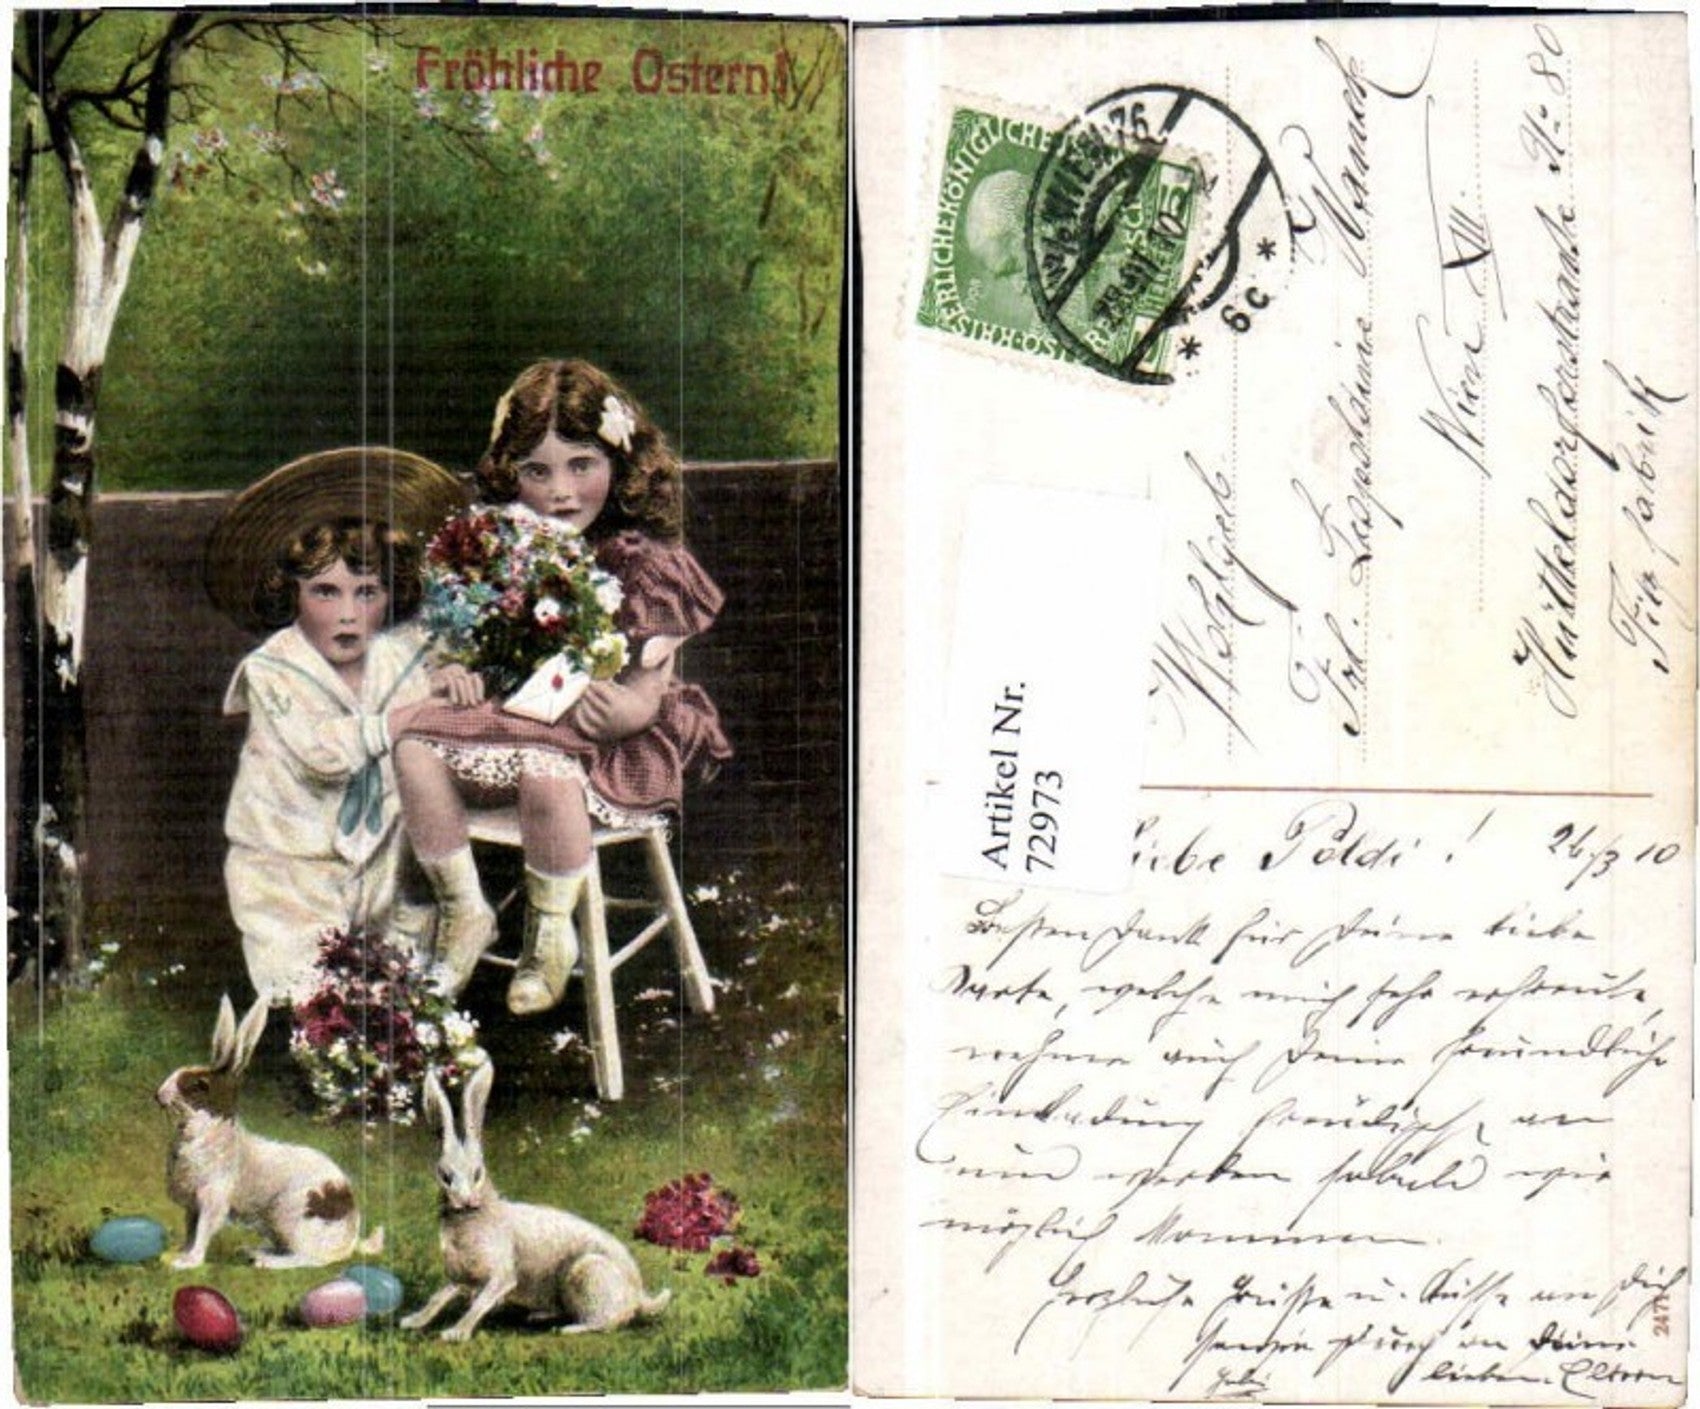 Fröhliche Ostern!
KAISERLICHEKÖNIGLICHE
ÖSTERR
WIEN 76
10
* 6c *
Wohlgeb.
Frl. Leopoldine
Wien XIII.
Hütteldorferstrasse Nr 80
Fabrik
Artikel Nr.
72973
Liebe Poldi! 26/3 10
Besten Dank für Deine liebe
Karte, welche mich sehr erfreute,
nehme auch Deine freundliche
Einladung freudigst an
und werden sobald wie
möglich kommen.
Herzliche Grüsse u. Küsse an Dich
Deine
lieben Eltern
2471